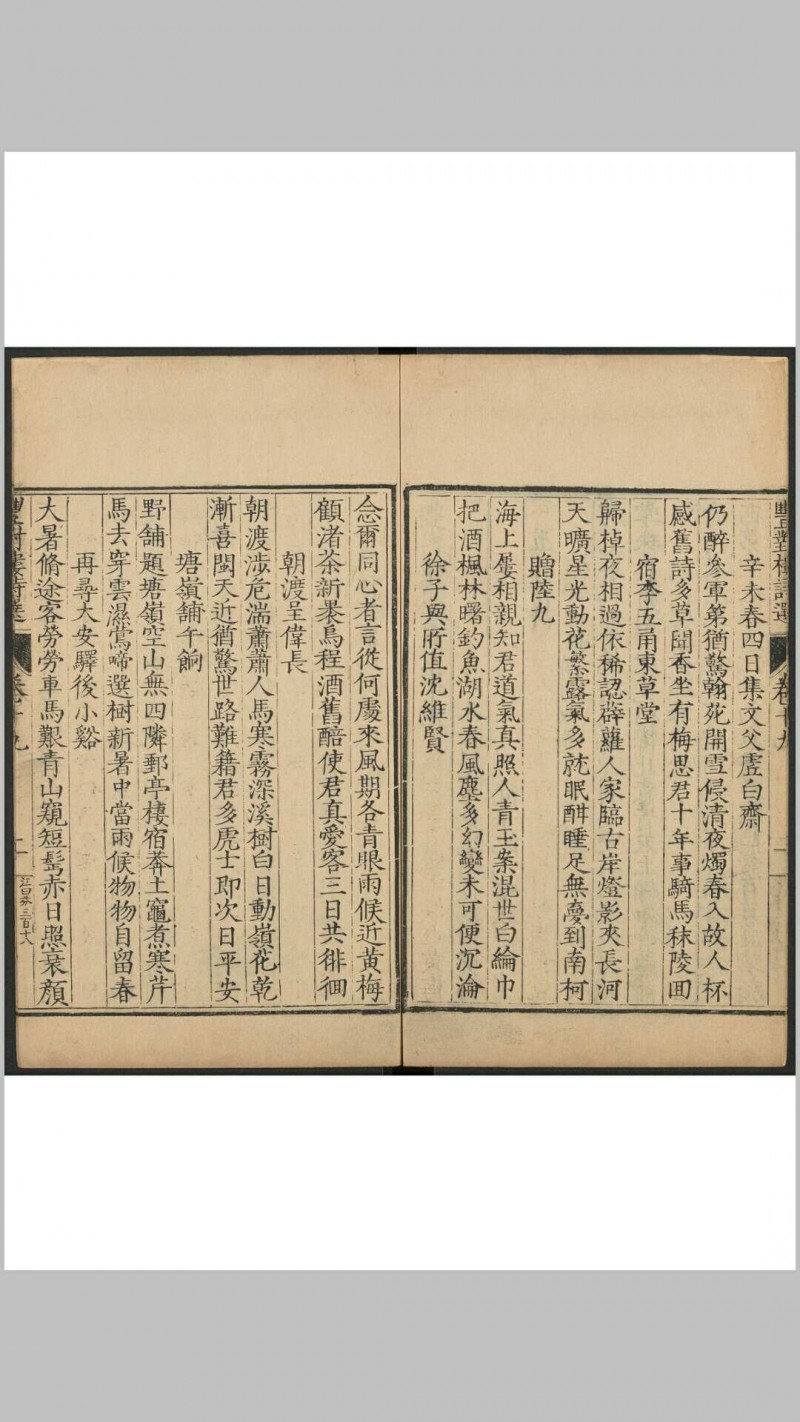 豐對樓詩選
卷十九
辛未春四日集文父虛白齋
仍醉參軍第猶驚翰苑開雪侵清夜燭春入故人杯
感舊詩多草聞香坐有梅思君十年事騎馬秣陵回
宿李五甬東草堂
歸棹夜相過依稀認薜蘿人家臨古岸燈影夾長河
天曠星光動花繁露氣多就眠酣睡足無夢到南柯
贈陸九
海上屢相親知君道氣真照人青玉案混世白綸巾
把酒楓林曙釣魚湖水春風塵多幻變未可便沉淪
徐子與所值沈維賢
念爾同心者言從何處來風期各青眼雨候近黃梅
顧渚茶新裛烏程酒舊醅使君真愛客三日共徘徊
朝渡呈偉長
朝渡涉危湍蕭蕭人馬寒霧深溪樹白日動嶺花乾
漸喜閩天近猶驚世路難籍君多虎士即次日平安
塘嶺舖午餉
野舖題塘嶺空山無四隣郵亭棲宿莽土竈煮寒芹
馬去穿雲濕鶯啼選樹新暑中當雨候物物自留春
再尋大安驛後小谿
大暑脩途客勞勞車馬艱青山窺短髩赤日照衰顏
豐對樓詩選
卷十九
二